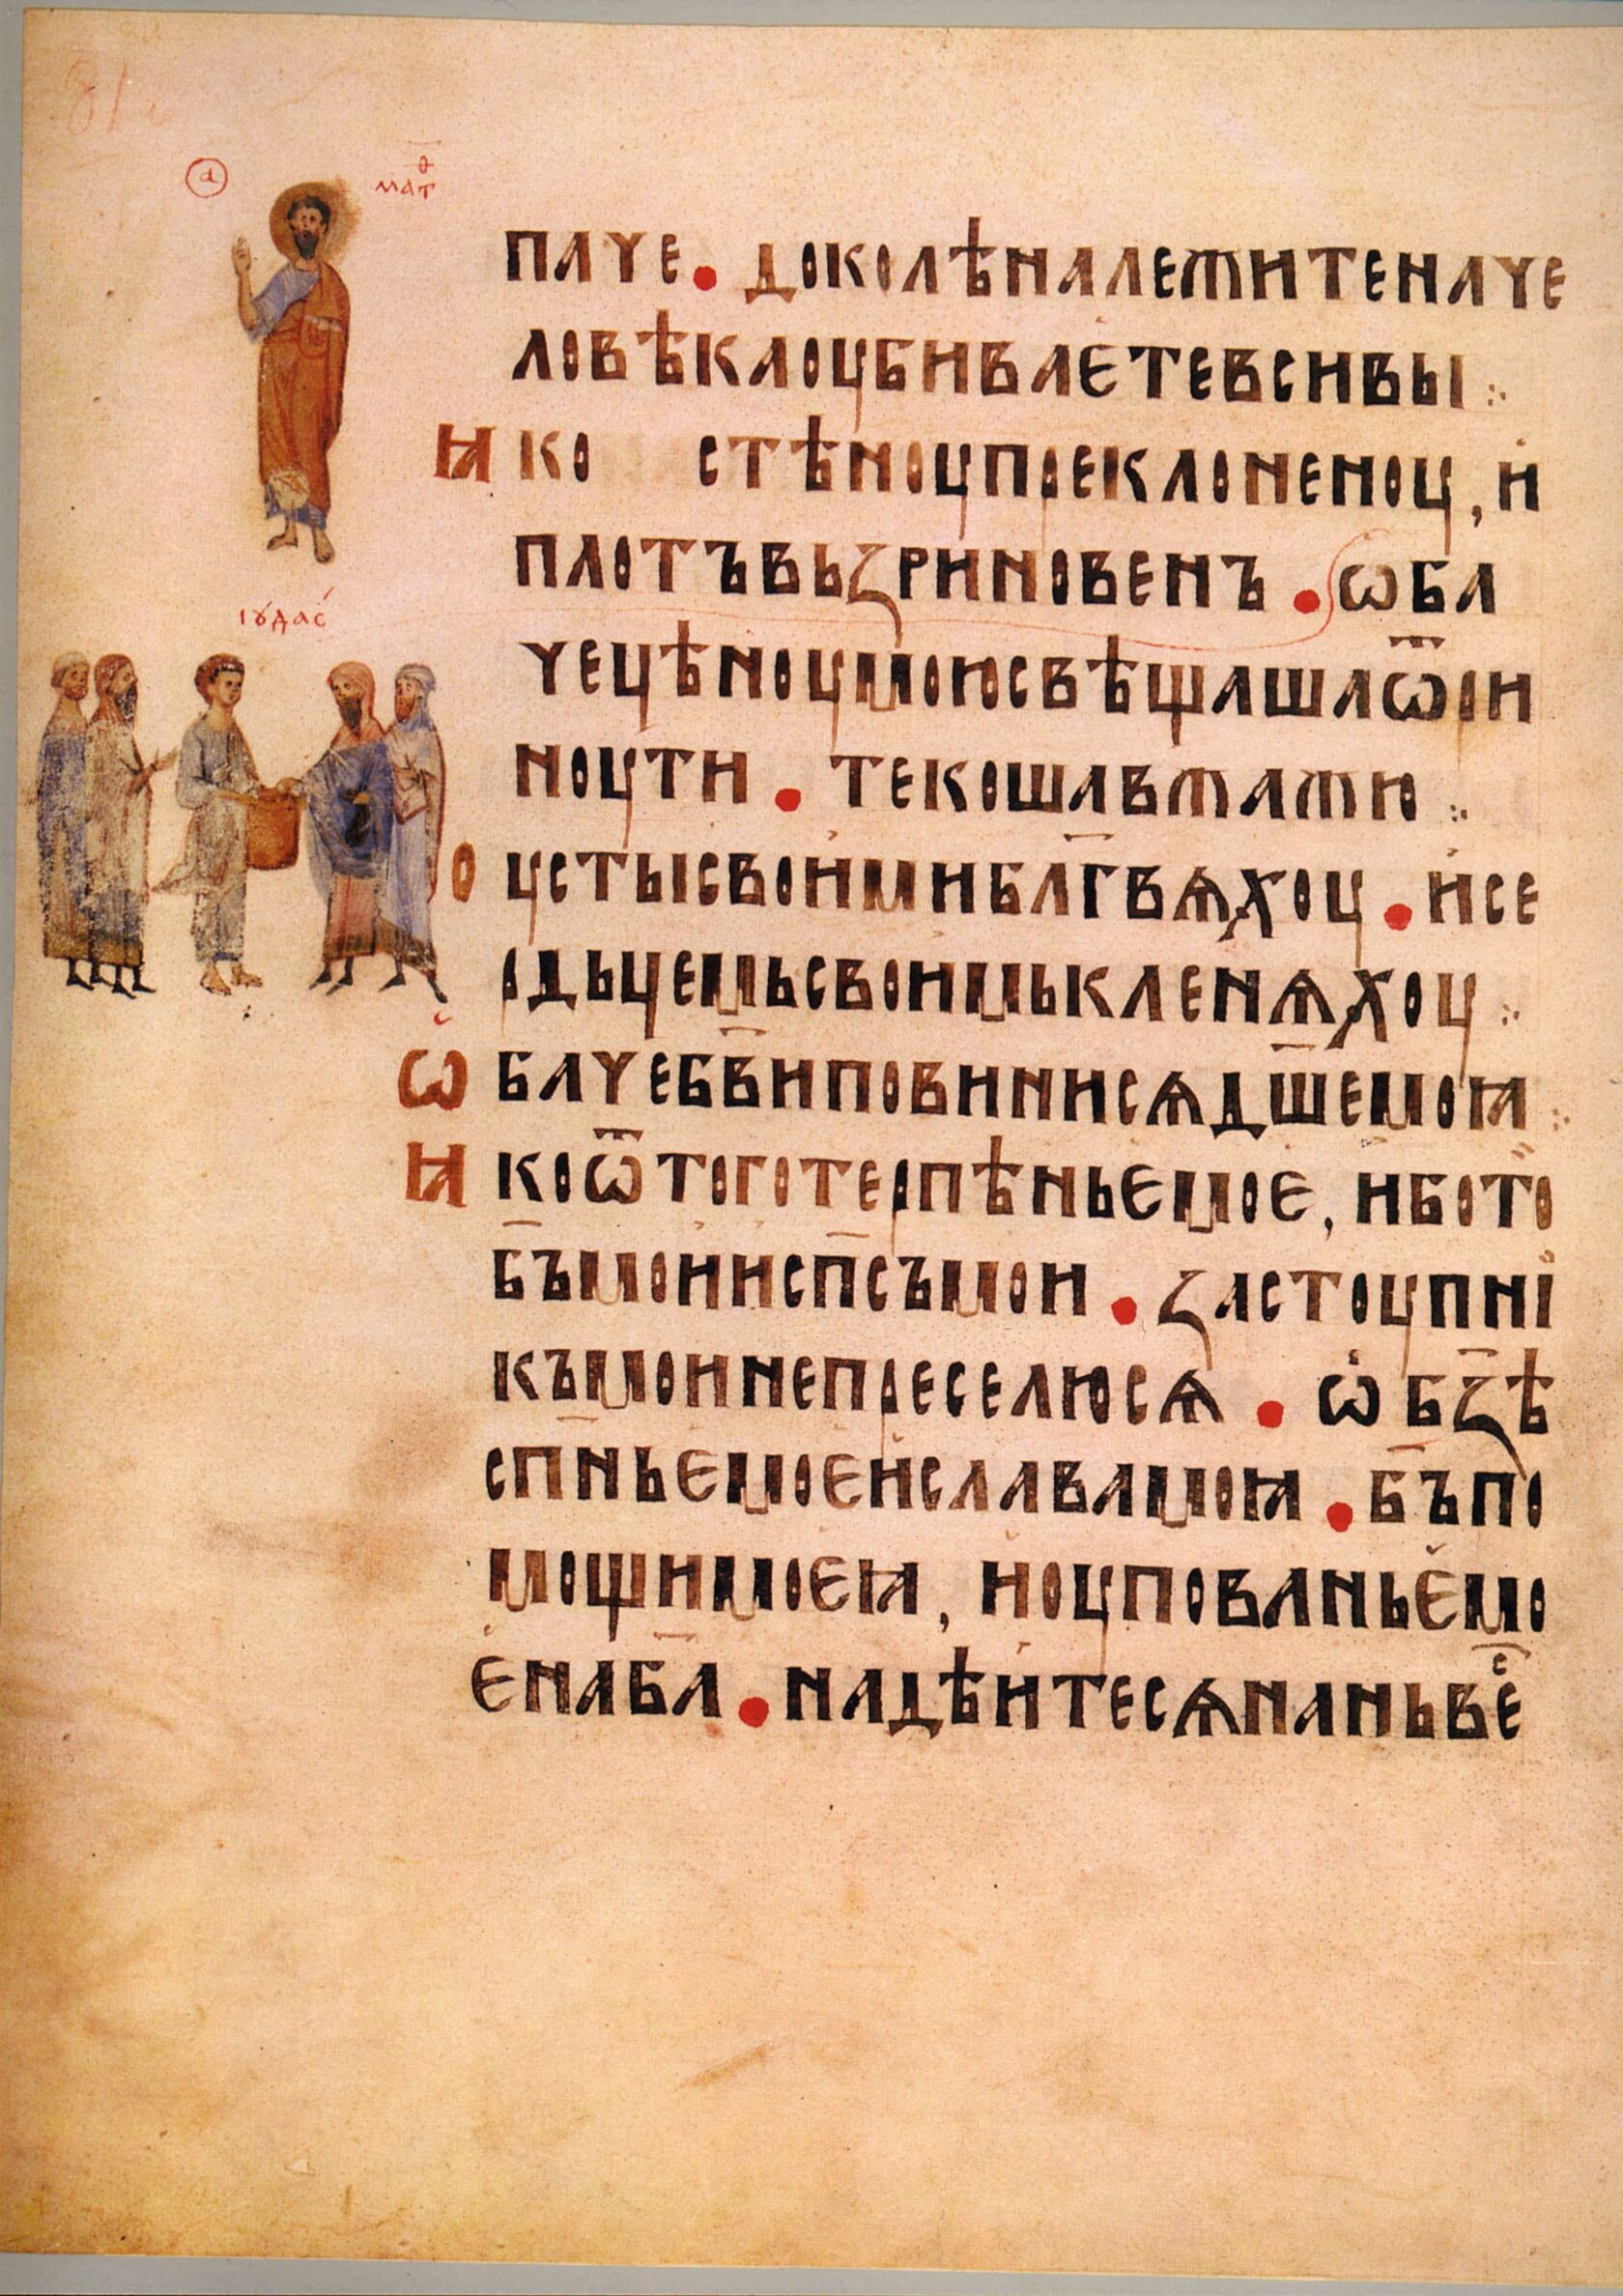 а
маѳ҃т
паче • доколѣналежитеначе
ловѣкаоубиваѥтевсивы ⁘
ꙗко стѣноупрекл​оненоу, и
плотъвьзриновенъ • ѡба
іꙋдас
чецѣноумоюсвѣщашаѿри
ноути • текошавжажю ⁘
оустысвоимибл҃гвѧхоу • исе
рдьцемьсвоимькленѧхоу ⁘
ѡбачебв҃иповинисѧдш҃емоꙗ ⁘
ꙗкоѿтоготерпѣньѥмоѥ, иботъ
бъ҃моииспс҃ъмои • застоупнi
къмоинепреселюсѧ • ѡбз҃ѣ
спн҃ьѥмоѥиславамоꙗ • бъ҃по
мощимоѥꙗ, иоупованьѥмо
ѥнаба҃ • надѣитесѧнаньвеⷭ